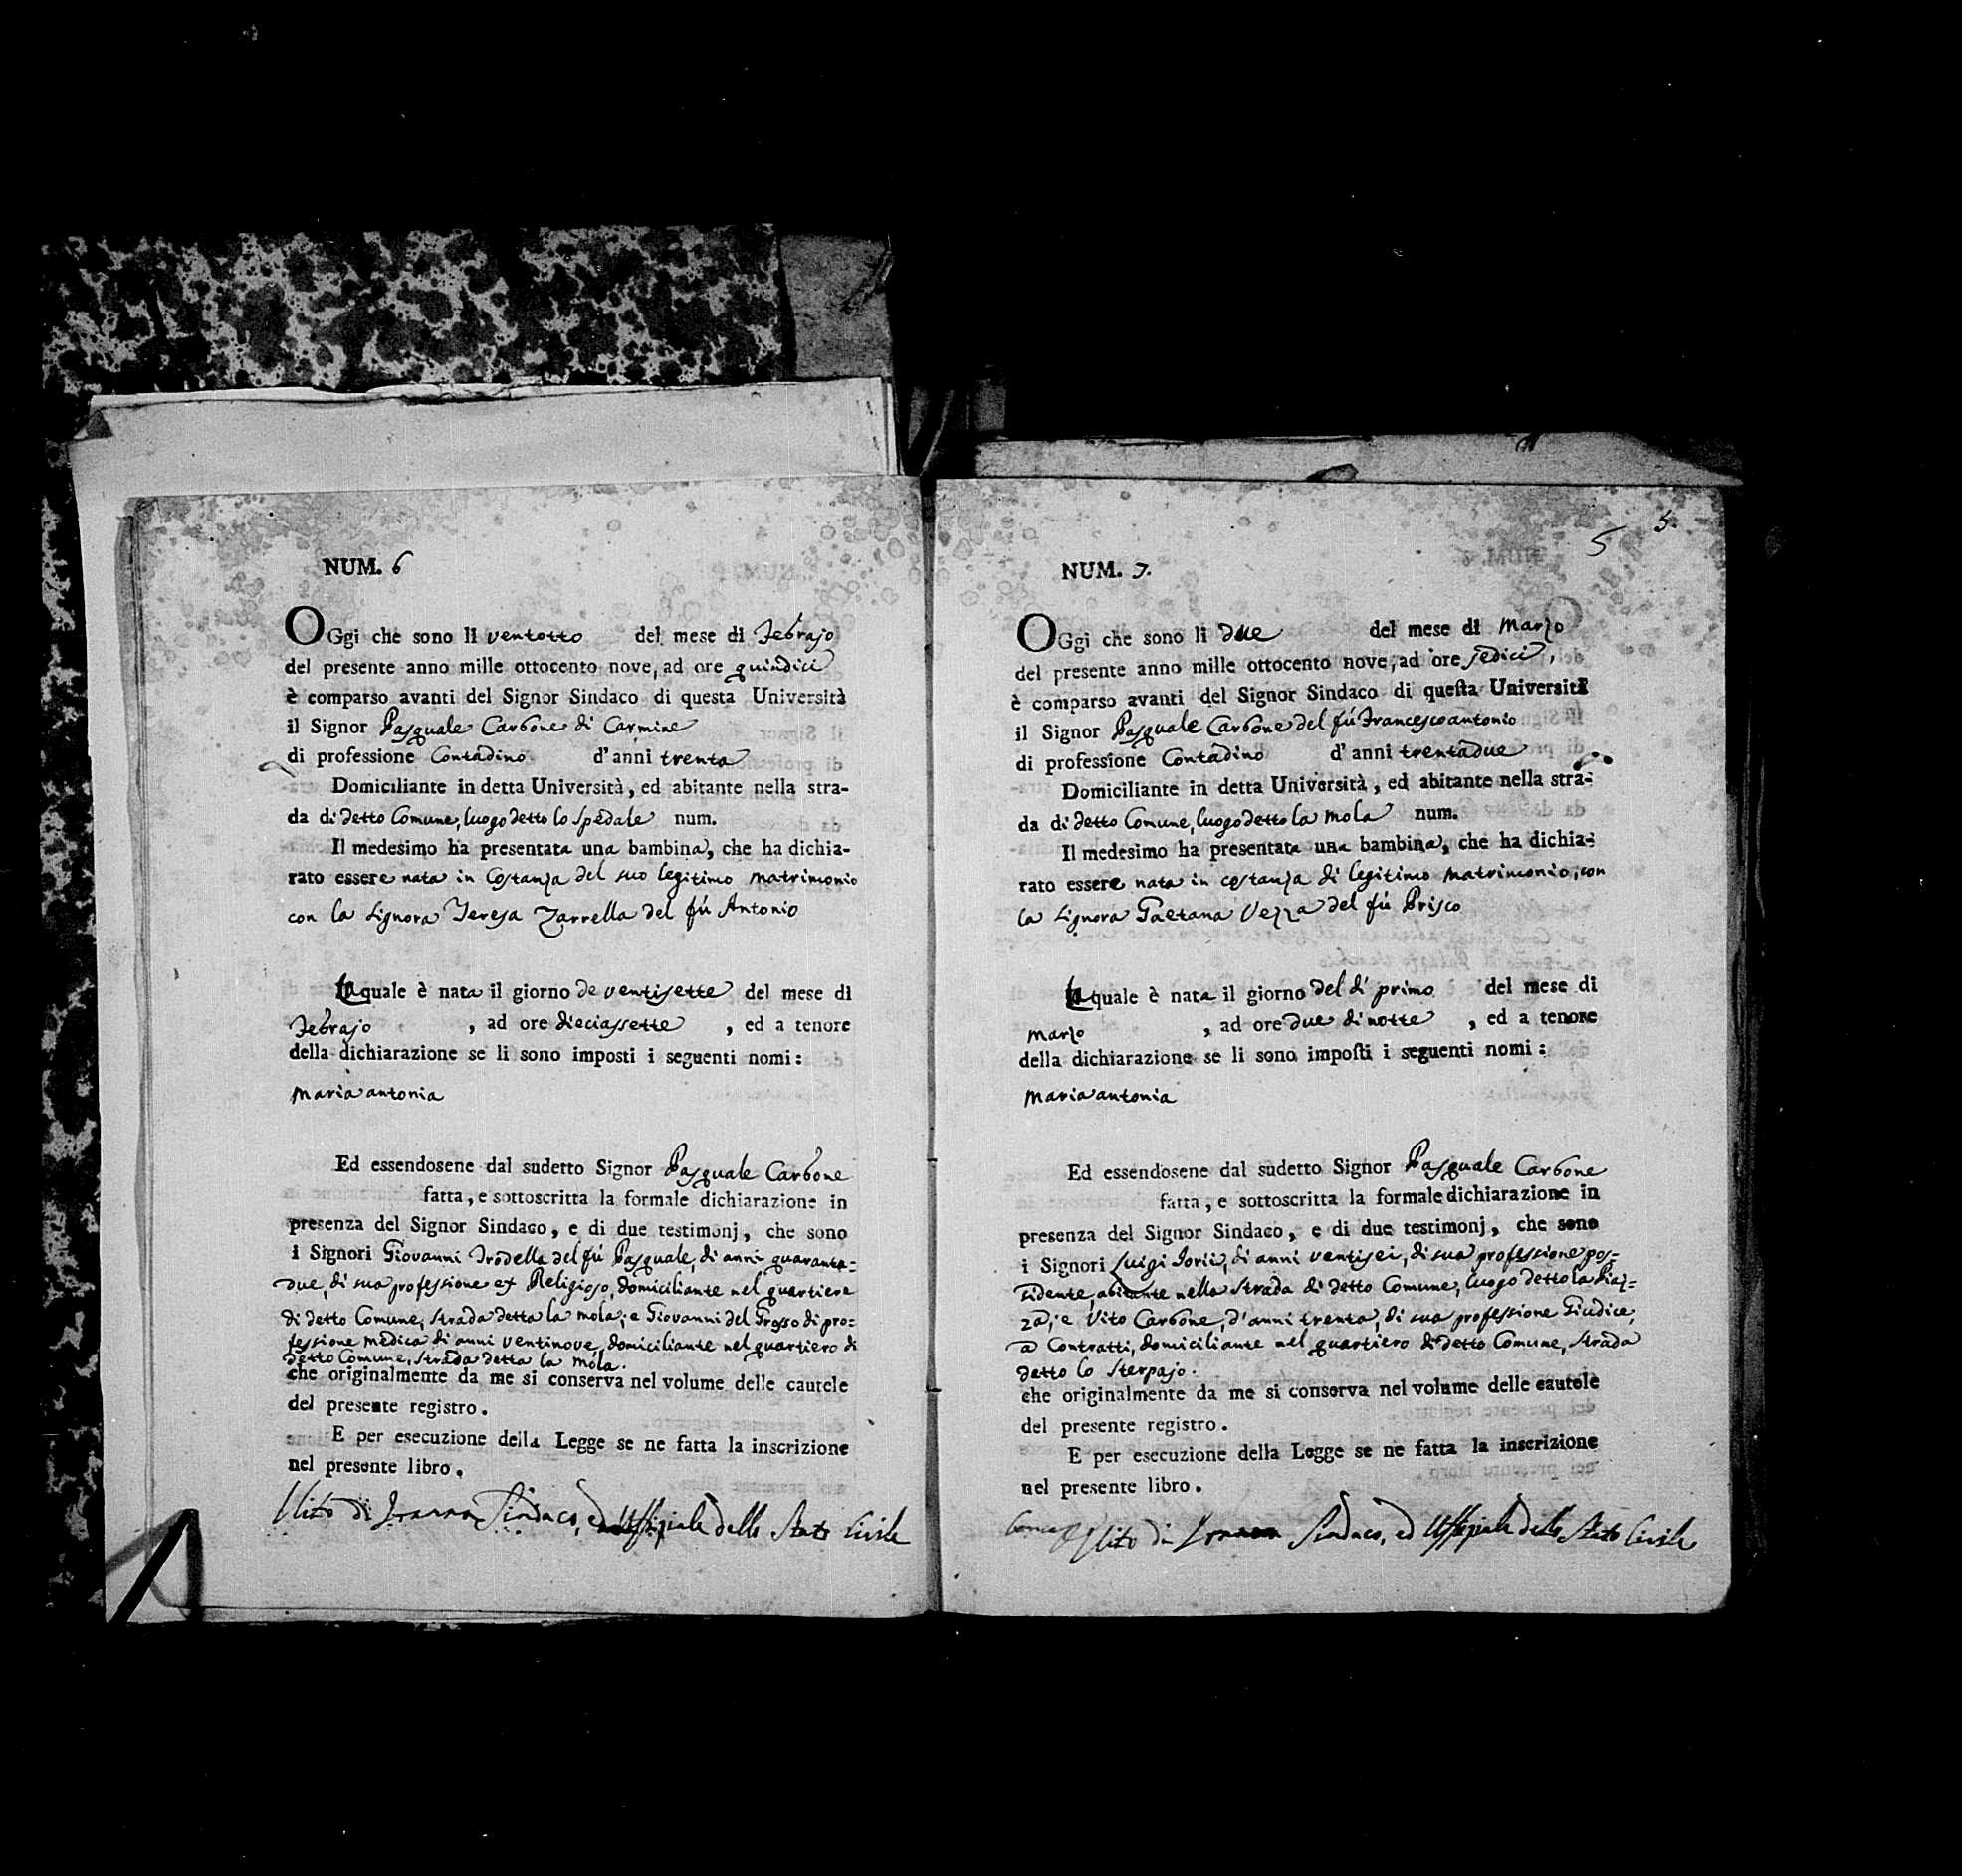 NUM. 6
OGgi che sono li ventotto del mese di Febrajo
del presente anno mille ottocento nove, ad ore quindici
è comparso avanti del Signor Sindaco di questa Università
il Signor Pasquale Carbone di Carmine
di professione Contadino d'anni trenta
Domiciliante in detta Università, ed abitante nella stra-
da di detto Comune, luogo detto lo Spedale num.
Il medesimo ha presentata una bambina, che ha dichia-
rato essere nata in Costanza del suo legitimo matrimonio
con la Signora Teresa Zarrella del fú Antonio
La quale è nata il giorno de ventisette del mese di
Febrajo , ad ore dieciassette , ed a tenore
della dichiarazione se li sono imposti i seguenti nomi:
Maria antonia
Ed essendosene dal sudetto Signor Pasquale Carbone
fatta, e sottoscritta la formale dichiarazione in
presenza del Signor Sindaco, e di due testimonj, che sono
i Signori Giovanni Irodella del fú Pasquale, di anni quaranta=
due, di sua professione ex Religioso, domiciliante nel quartiere
di detto Comune, strada detta la mola; e Giovanni del Grosso di pro=
fessione medica di anni ventinove, domiciliante nel quartiero di
detto Comune, strada detta la mola.
che originalmente da me si conserva nel volume delle cautele
del presente registro.
E per esecuzione della Legge se ne fatta la inscrizione
nel presente libro.
Vito di Sindaco, ed Uffiziale dello Stato Civile
5 5.
NUM. 7.
OGgi che sono li due del mese di Marzo
del presente anno mille ottocento nove, ad ore sedici,
è comparso avanti del Signor Sindaco di questa Università
il Signor Pasquale Carbone del fú Francescoantonio
di professione Contadino d'anni trentadue
Domiciliante in detta Università, ed abitante nella stra-
da di detto Comune, luogo detto la Mola num.
Il medesimo ha presentata una bambina, che ha dichia-
rato essere nata in costanza di legitimo matrimonio, con
la Signora Gaetana Vezza del fú Prisco
La quale è nata il giorno del dì primo del mese di
Marzo , ad ore due di notte , ed a tenore
della dichiarazione se li sono imposti i seguenti nomi:
Maria antonia
Ed essendosene dal sudetto Signor Pasquale Carbone
fatta, e sottoscritta la formale dichiarazione in
presenza del Signor Sindaco, e di due testimonj, che sono
i Signori Luigi Iorii, di anni ventisei, di sua professione pos=
sidente, abitante nella strada di detto Comune, luogo detto la Piaz=
za; e Vito Carbone, d'anni trenta, di sua professione Giudice,
a Contratti, domiciliante nel quartiero di detto Comune, strada
detto lo Sterpajo.
che originalmente da me si conserva nel volume delle cautele
del presente registro.
E per esecuzione della Legge se ne fatta la inscrizione
nel presente libro.
Vito di Sindaco, ed Uffiziale dello Stato Civile